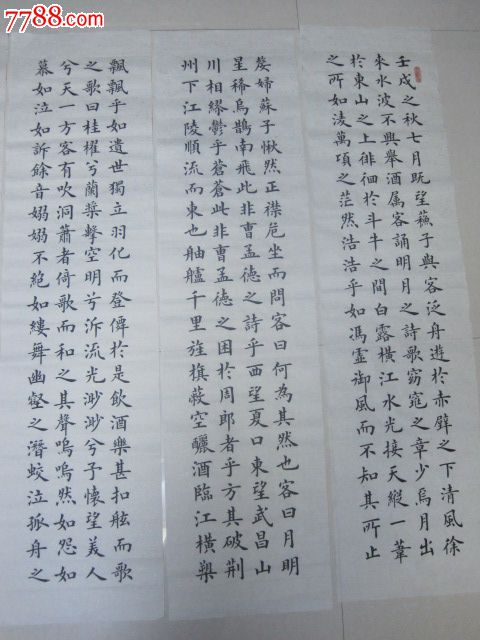 7788.com
壬戌之秋七月既望蘇子與客泛舟遊於赤壁之下清風徐
來水波不興舉酒属客誦明月之詩歌窈窕之章少焉月出
於東山之上徘徊於斗牛之間白露橫江水光接天縱一葦
之所如淩萬頃之茫然浩浩乎如馮虛御風而不知其所止
嫠婦蘇子愀然正襟危坐而問客曰何為其然也客曰月明
星稀烏鵲南飛此非曹孟德之詩乎西望夏口東望武昌山
川相繆鬱乎蒼蒼此非曹孟德之困於周郎者乎方其破荊
州下江陵順流而東也舳艫千里旌旗蔽空釃酒臨江橫槊
飄飄乎如遺世獨立羽化而登僊於是飲酒樂甚扣舷而歌
之歌曰桂櫂兮蘭槳擊空明兮泝流光渺渺兮予懷望美人
兮天一方客有吹洞簫者倚歌而和之其聲嗚嗚然如怨如
慕如泣如訴餘音嫋嫋不絕如縷舞幽壑之潛蛟泣孤舟之